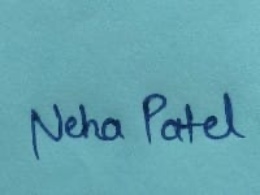 Neha Patel